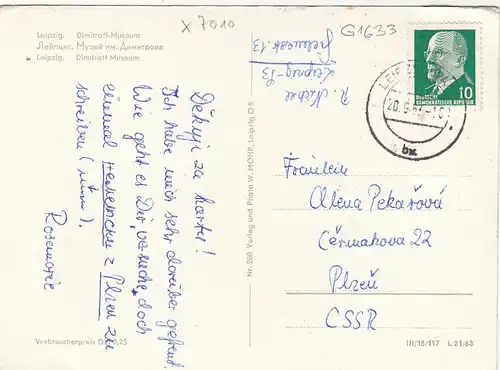 x 7010
G1633
Leipzig. Dimitroff-Museum
Лейпциг. Музей им. Димитрова
Leipzig. Dimitroff Museum
Leipzig-S3
10
DEUTSCHE
DEMOKRATISCHE REPUBLIK
bx
Děkuji za kartu!
Ich habe mich sehr darüber gefreut.
Wie geht es Dir, versuche doch
einmal
z Plzen zu
schreiben
Rosemarie
Nr. 288 Verlag und Photo W. HOHR, Leipzig O 5
Fräulein
Alena Pekařová
Čermakova 22
Plzeň
ČSSR
Verbraucherpreis DM 0,25
III/18/117 L 21/63